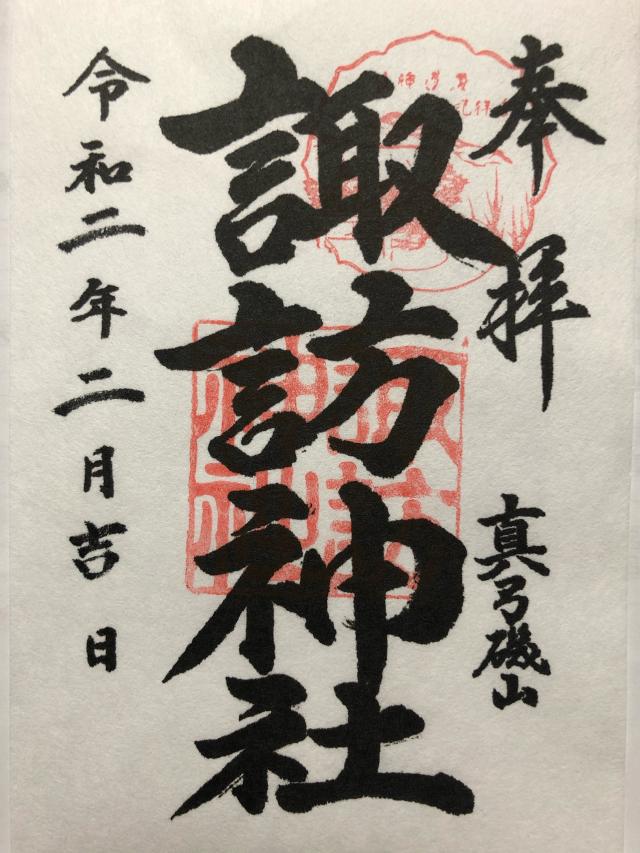 奉拝
真弓磯山
諏訪神社
令和二年二月吉日